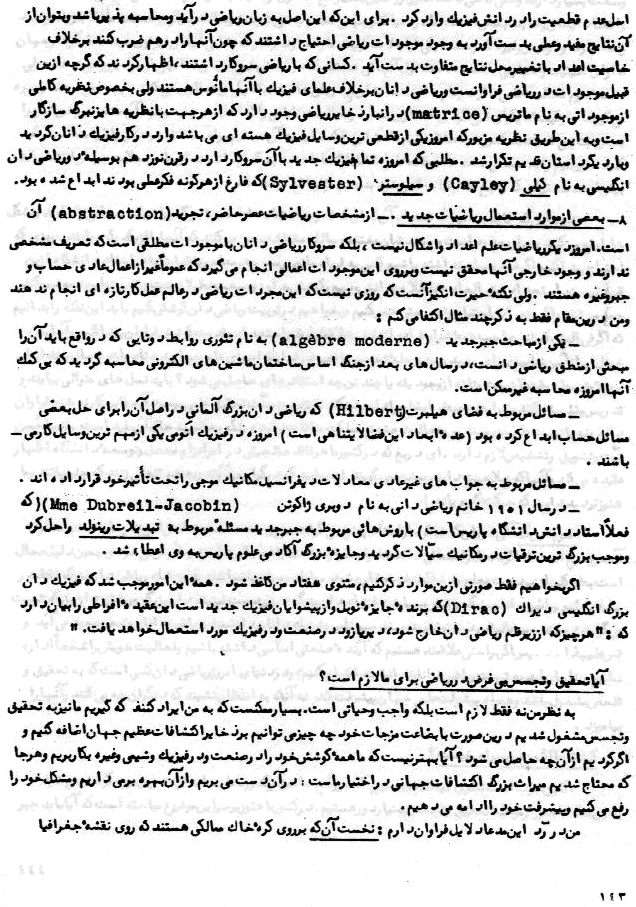 اصل عدم قطعیت را در دانش فیزیك وارد کرد . برای این که این اصل به زبان ریاضی در آید و محاسبه پذیر باشد و بتوان از
آن نتایج مفید و عملی بدست آورد به وجود موجودات ریاضی احتیاج داشتند که چون آنها را در هم ضرب کنند برخلاف
خاصیت اعداد با تغییر محل نتایج متفاوت بدست آید . کسانی که با ریاضی سروکار دارند ، اظهار کردند که گرچه از این
قبیل موجودات در ریاضی فراوانست و ریاضی دانان برخلاف علمای فیزیك با آنها مأنوس هستند ولی بخصوص نظریه کاملی
از موجوداتی به نام ماتریس (matrice) در انبار ذخایر ریاضی وجود دارد که از هر جهت با نظریه هایزنبرگ سازگار
است و به این طریق نظریه مزبور که امروز یکی از قطعی ترین وسایل فیزیك هسته ای می باشد وارد در کار فیزیك دانان گردید
و بار دیگر داستان قدیم تکرار شد . مطلبی که امروزه تمام فیزیك جدید با آن سروکار دارد در قرن نوزدهم بوسیله دو ریاضی دان
انگلیسی به نام کیلی (Cayley) و سیلوستر (Sylvester) که فارغ از هر گونه فکر عملی بودند ابداع شده بود .
۸ـ بعضی از موارد استعمال ریاضیات جدید . ـ از مشخصات ریاضیات عصر حاضر ، تجرید (abstraction) آن
است . امروز دیگر ریاضیات علم اعداد و اشکال نیست ، بلکه سروکار ریاضی دانان با موجودات مطلقی است که تعریف مشخصی
ندارند و وجود خارجی آنها محقق نیست و بر روی این موجودات اعمالی انجام می گیرد که عموماً غیر از اعمال عادی حساب و
جبر وغیره هستند . ولی نکته حیرت انگیز آنست که روزی نیست که این مجردات ریاضی در عالم عمل کار تازه ای انجام ندهند
ومن در این مقام فقط به ذکر چند مثال اکتفا می کنم :
ـ یکی از مباحث جبر جدید (algèbre moderne) به نام تئوری روابط دوتایی که در واقع باید آن را
مبحثی از منطق ریاضی دانست ، در سال های بعد از جنگ اساس ساختمان ماشین های الکترونی محاسبه گردید که بی کمك
آنها امروزه محاسبه غیر ممکن است .
ـ مسائل مربوط به فضای هیلبرت (Hilbert) که ریاضی دان بزرگ آلمانی در اصل آن را برای حل بعضی
مسائل حساب ابداع کرده بود (عده ابعاد این فضا لایتناهی است) امروزه در فیزیك اتومی یکی از مهم ترین وسایل کار می ـ
باشند .
ـ مسائل مربوط به جواب های غیر عادی معادلات دیفرانسیل مکانیك موجی را تحت تأثیر خود قرار داده اند .
ـ در سال ۱۹۵۱ خانم ریاضی دانی به نام دوبری ژاکوتن (Mme Dubreil-Jacobin) (که
فعلاً استاد دانش دانشگاه پاریس است) با روش هائی مربوط به جبر جدید مسئله مربوط به تبدیلات رینولد را حل کرد
وموجب بزرگ ترین ترقیات در مکانیك سیالات گردید و جایزه بزرگ آکادمی علوم پاریس به وی اعطاء ، شد .
اگر بخواهیم فقط صورتی از این موارد ذکر کنیم ، مثنوی هفتاد من کاغذ شود . همه این امور موجب شد که فیزیك دان
بزرگ انگلیسی دیراك (Dirac) که برنده جایزه نوبل و از پیشوایان فیزیك جدید است این عقیده افراطی را بیان دارد
که : " هر چیز که از زیر قلم ریاضی دان خارج شود ، دیر یا زود در صنعت و در فیزیك مورد استعمال خواهد یافت . "
آیا تحقیق وتجسس بی غرض در ریاضی برای ما لازم است ؟
به نظر من نه فقط لازم است بلکه واجب وحیاتی است . بسیار ممکنست که به من ایراد کنند که گیریم ما نیز به تحقیق
وتجسس مشغول شدیم در این صورت با بضاعت مزجات خود چه چیزی می توانیم بر ذخایر اکتشافات عظیم جهان اضافه کنیم و
اگر کردیم از آن چه حاصل می شود ؟ آیا بهتر نیست که ما همه کوشش خود را در صنعت و در فیزیك و شیمی وغیره بکار بریم و هر جا
که محتاج شدیم میراث بزرگ اکتشافات جهانی در اختیار ماست : در آن دست می بریم و از آن بهره بر می داریم و مشکل خود را
رفع می کنیم و پیشرفت خود را ادامه می دهیم .
من در رد این مدعا دلایل فراوان دارم : نخست آن که بر روی کره خاك ممالکی هستند که روی نقشه جغرافیا
۱٤۳